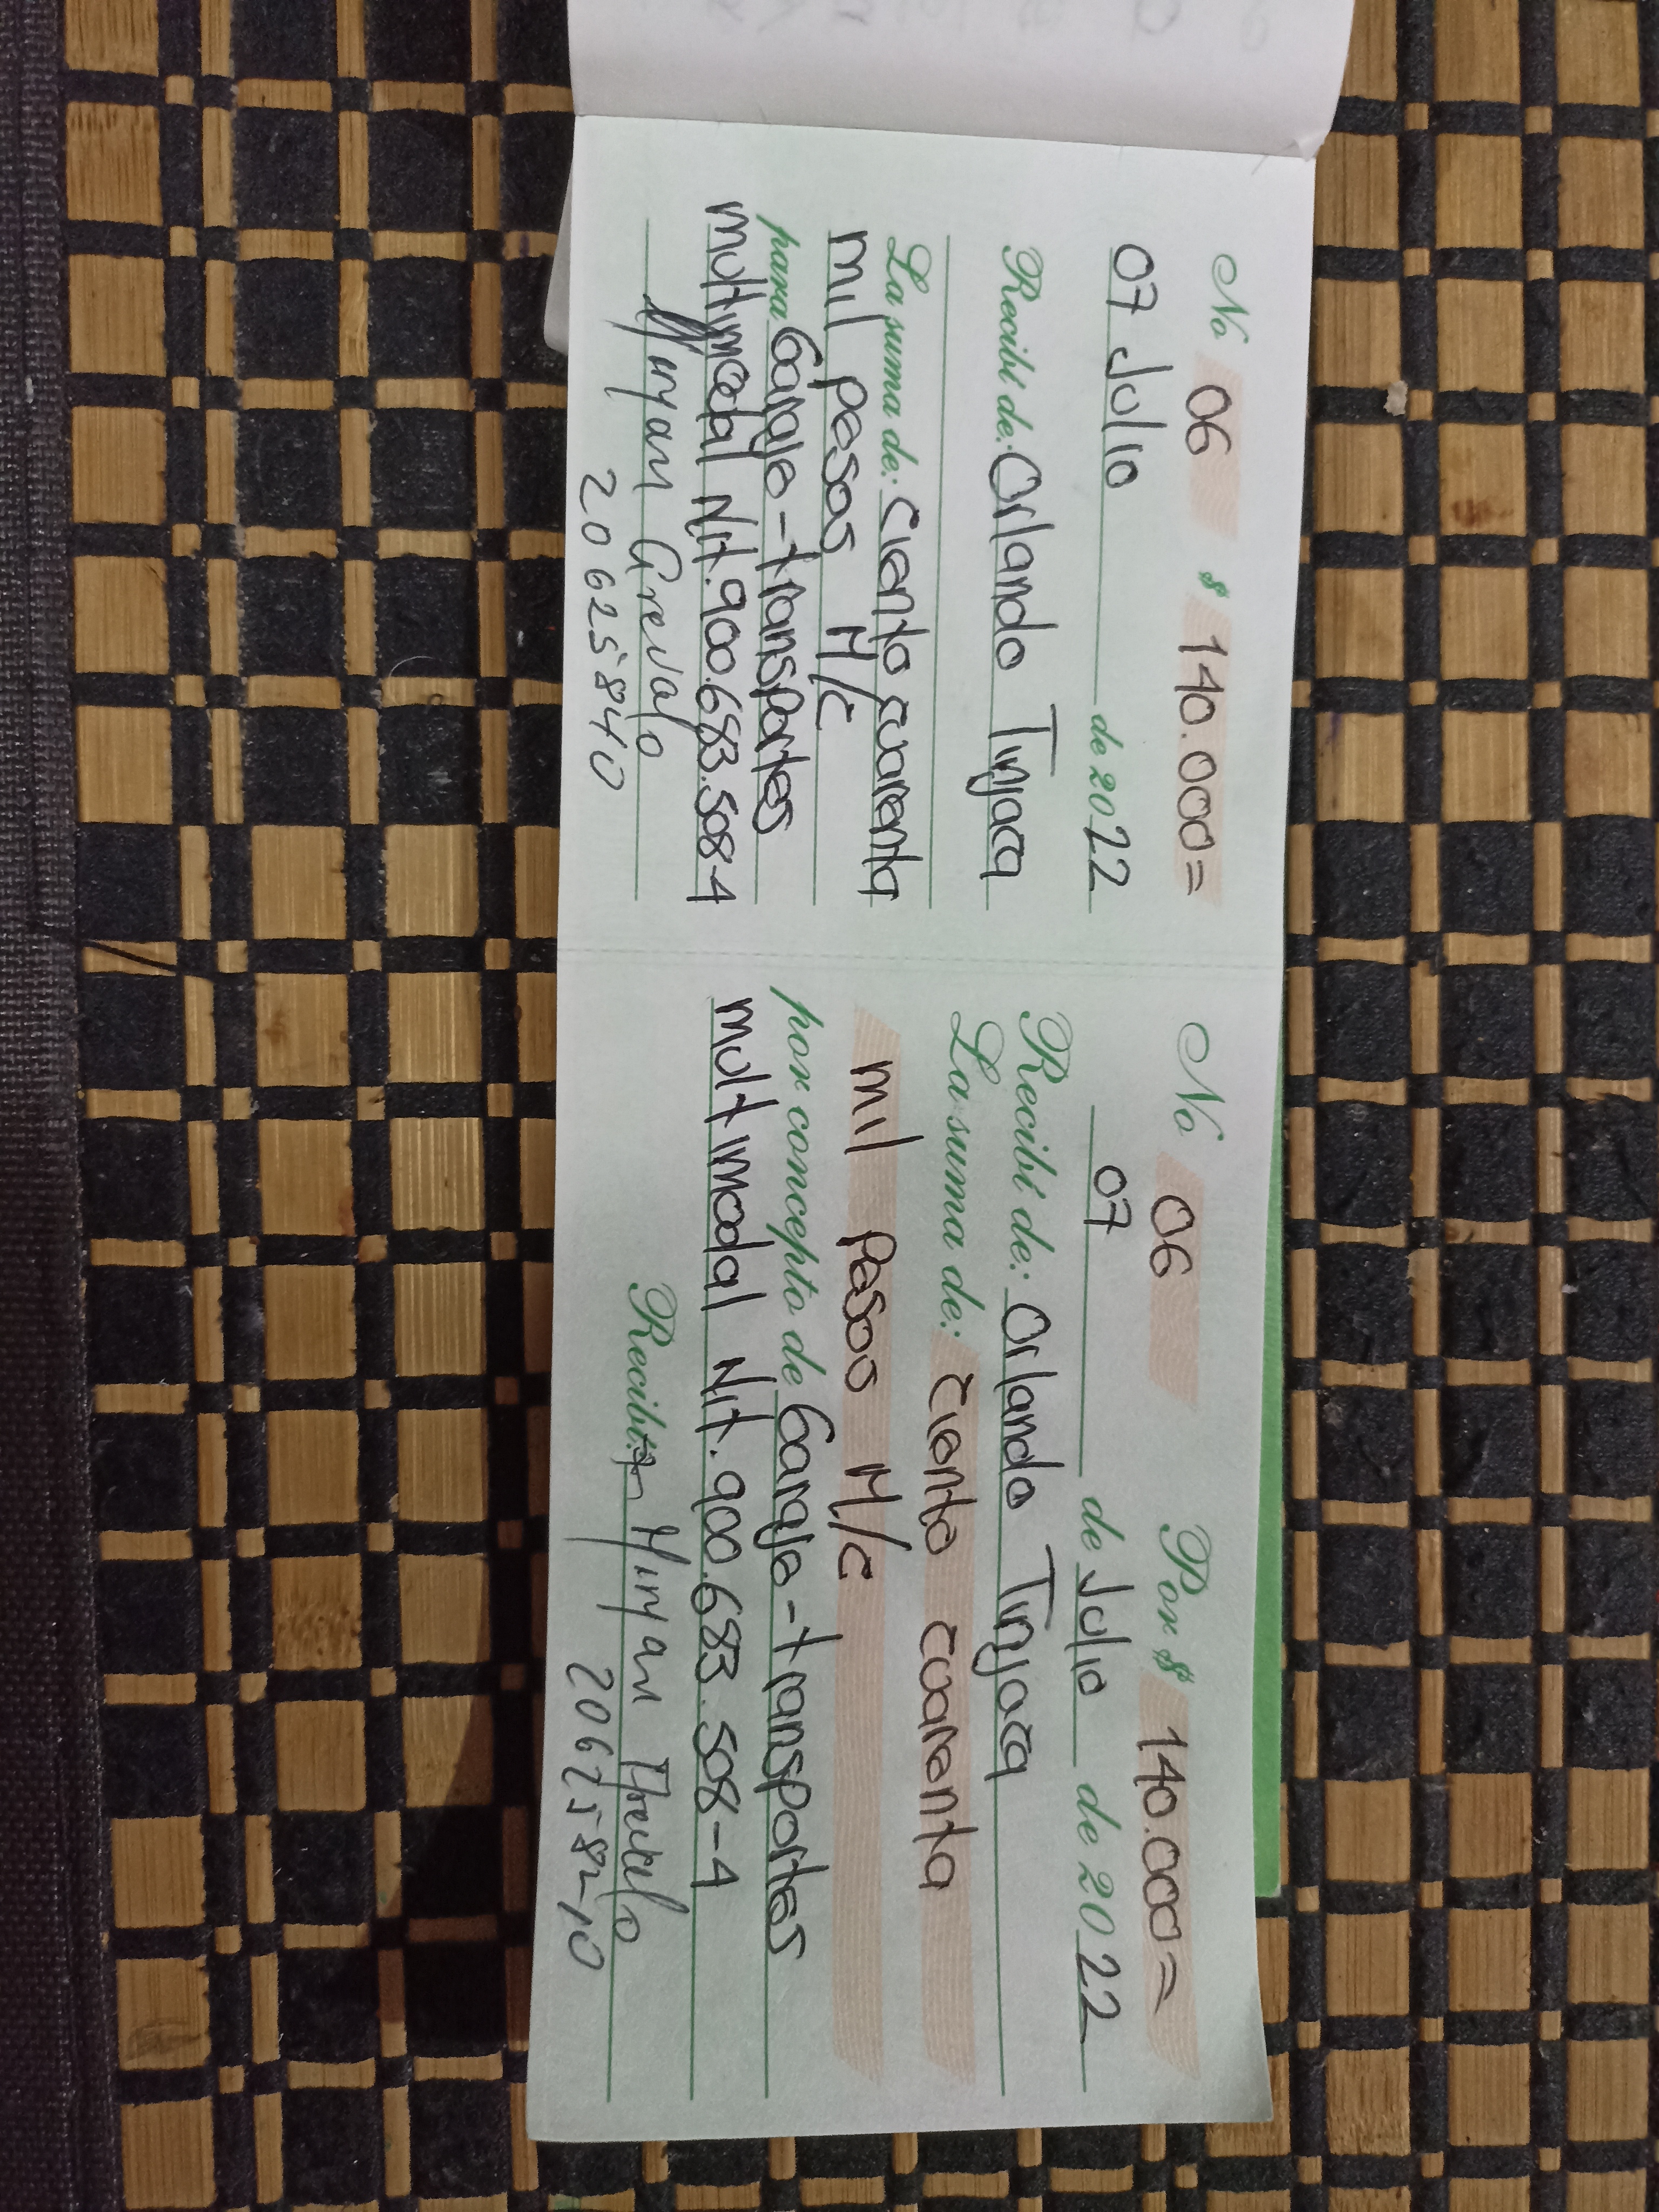 No 06 $ 140.000=
07 Julio de 2022
Recibí de: Orlando Tinjaca
La suma de: Ciento cuarenta
mil pesos M/c
para Garaje - transportes
multimodal Nit. 900.683.508-4
Miryam Arevalo
20625840
No 06 Por $ 140.000=
07 de Julio de 2022
Recibí de: Orlando Tinjaca
La suma de: Ciento cuarenta
mil Pesos M/c
por concepto de Garaje - transportes
multimodal Nit. 900.683.508-4
Recibí: Miryam Arevalo
20625840